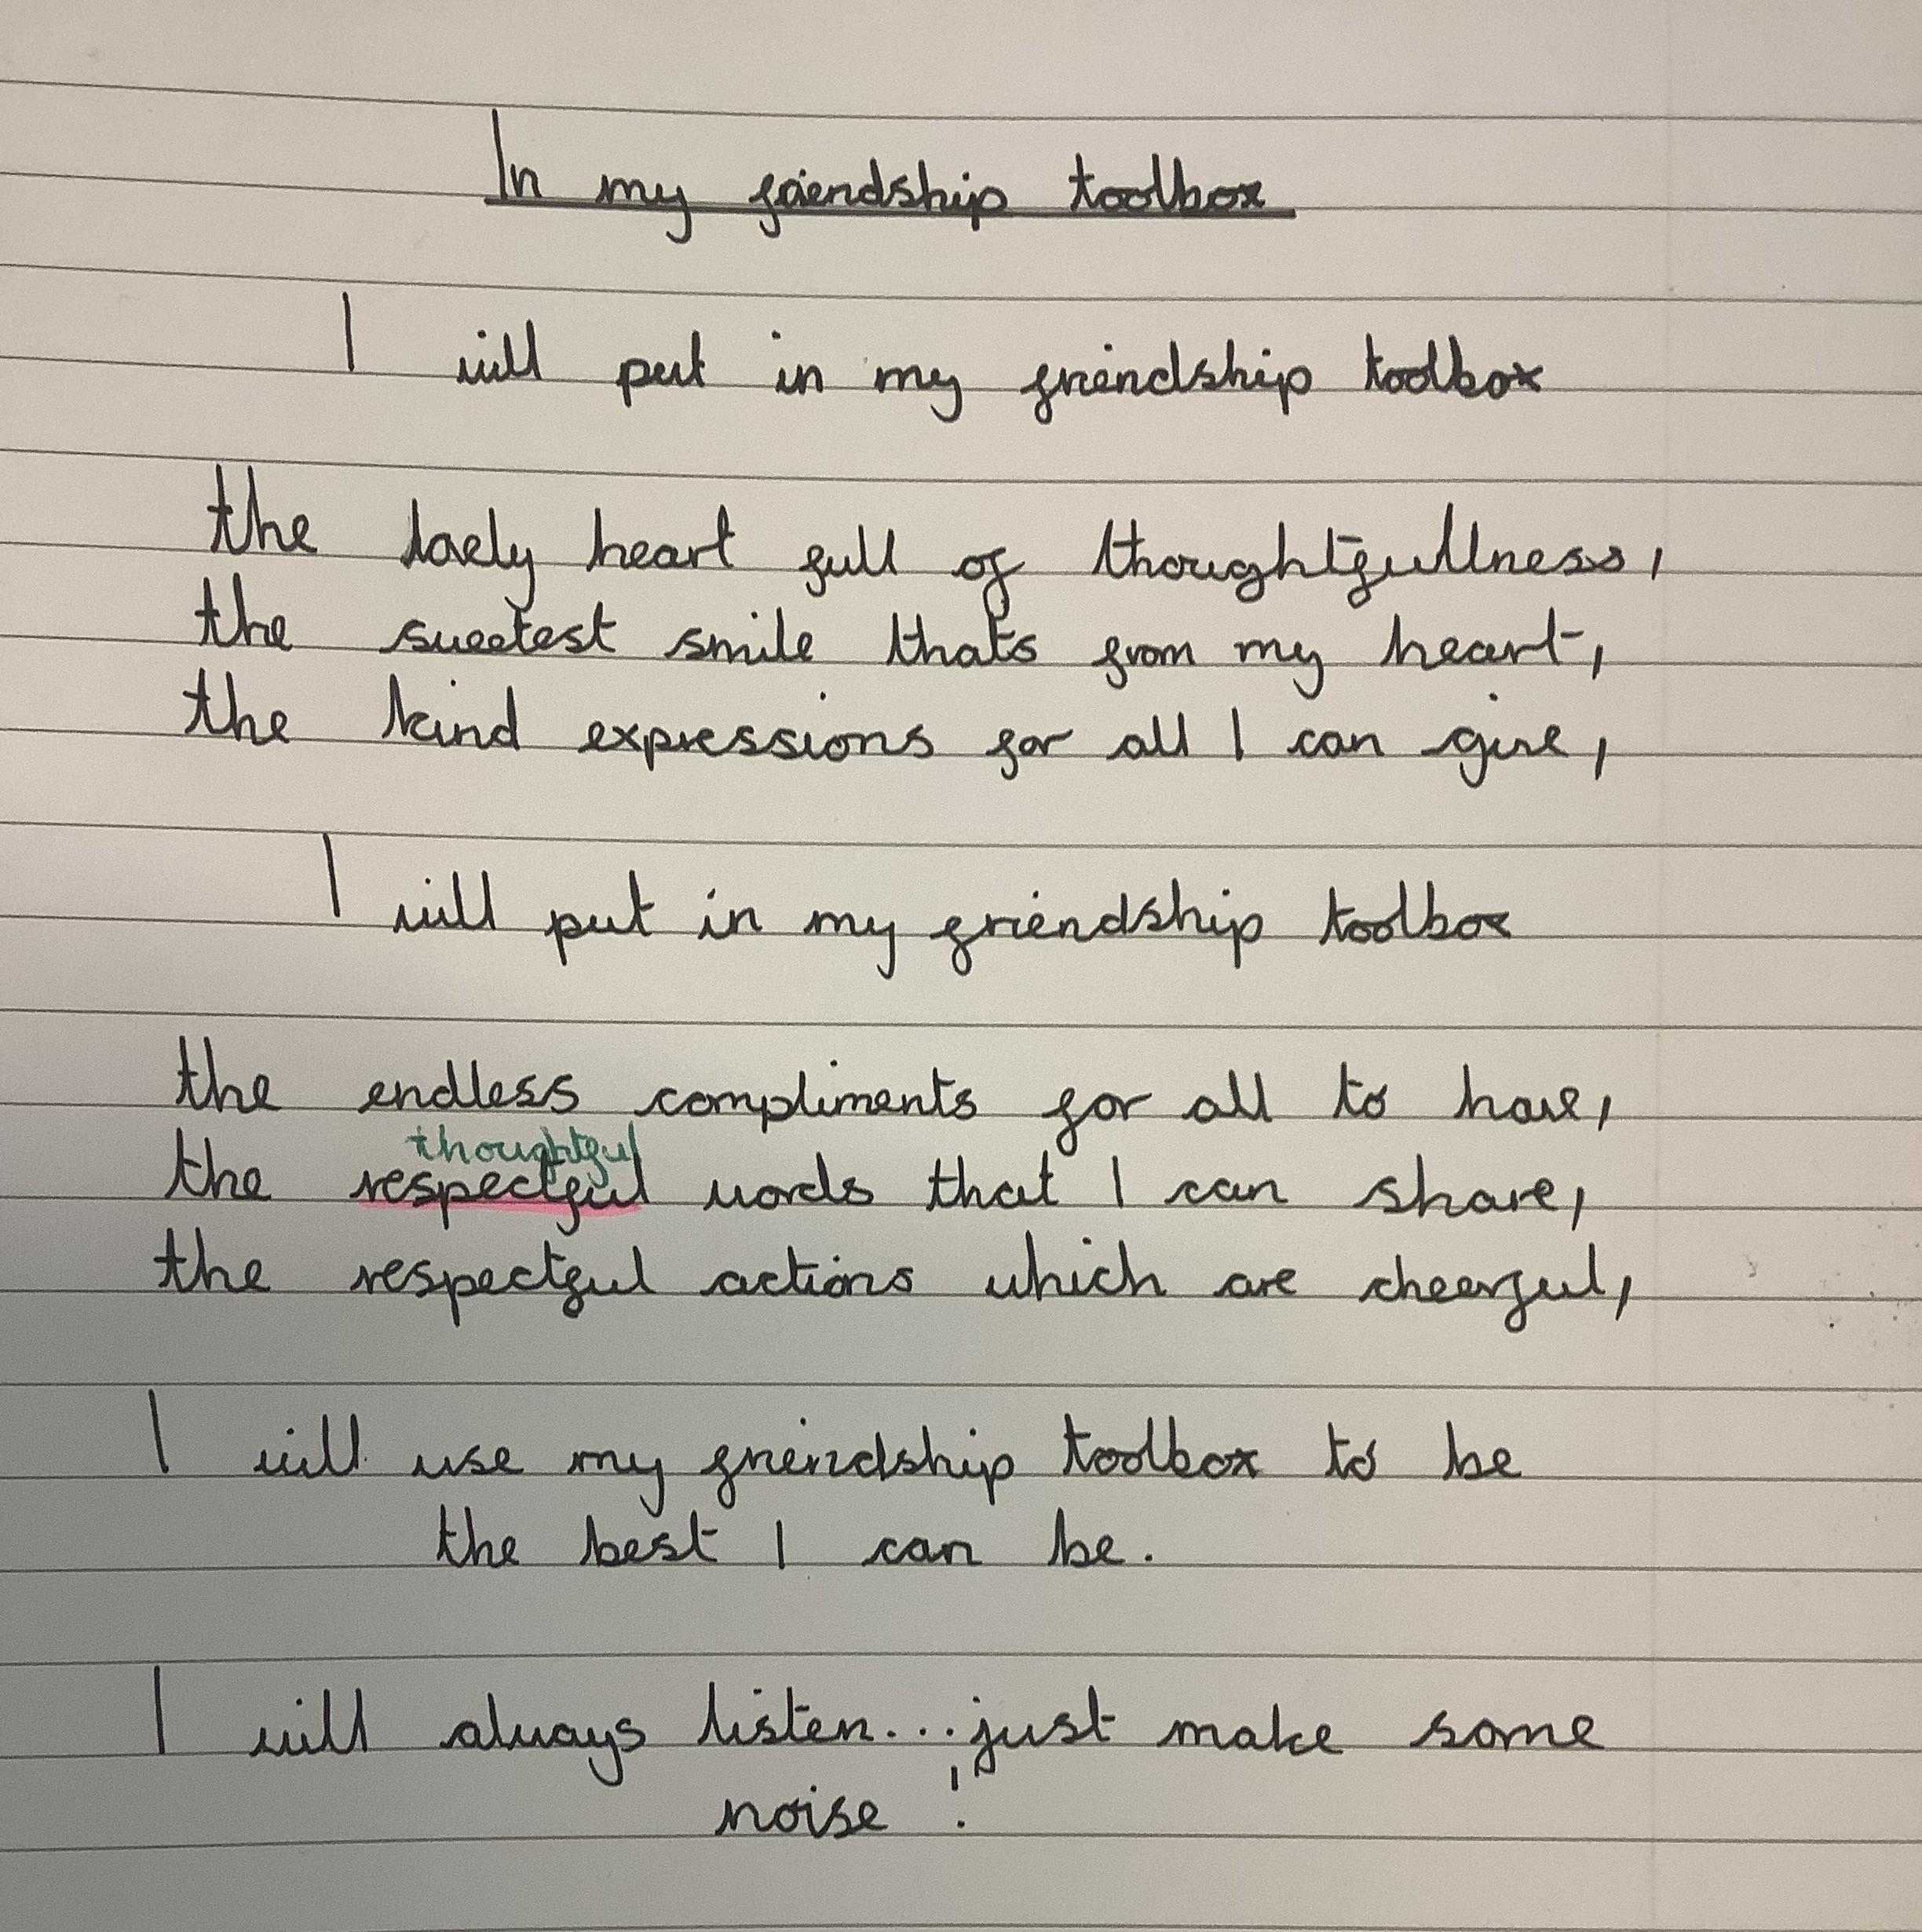 In my friendship toolbox
I will put in my friendship toolbox
the lovely heart full of thoughtfullness,
the sweetest smile thats from my heart,
the kind expressions for all I can give,
I will put in my friendship toolbox
the endless compliments for all to have,
thoughtful
the respectful words that I can share,
the respectful actions which are cheerful,
I will use my friendship toolbox to be
the best I can be.
I will always listen...just make some
noise !